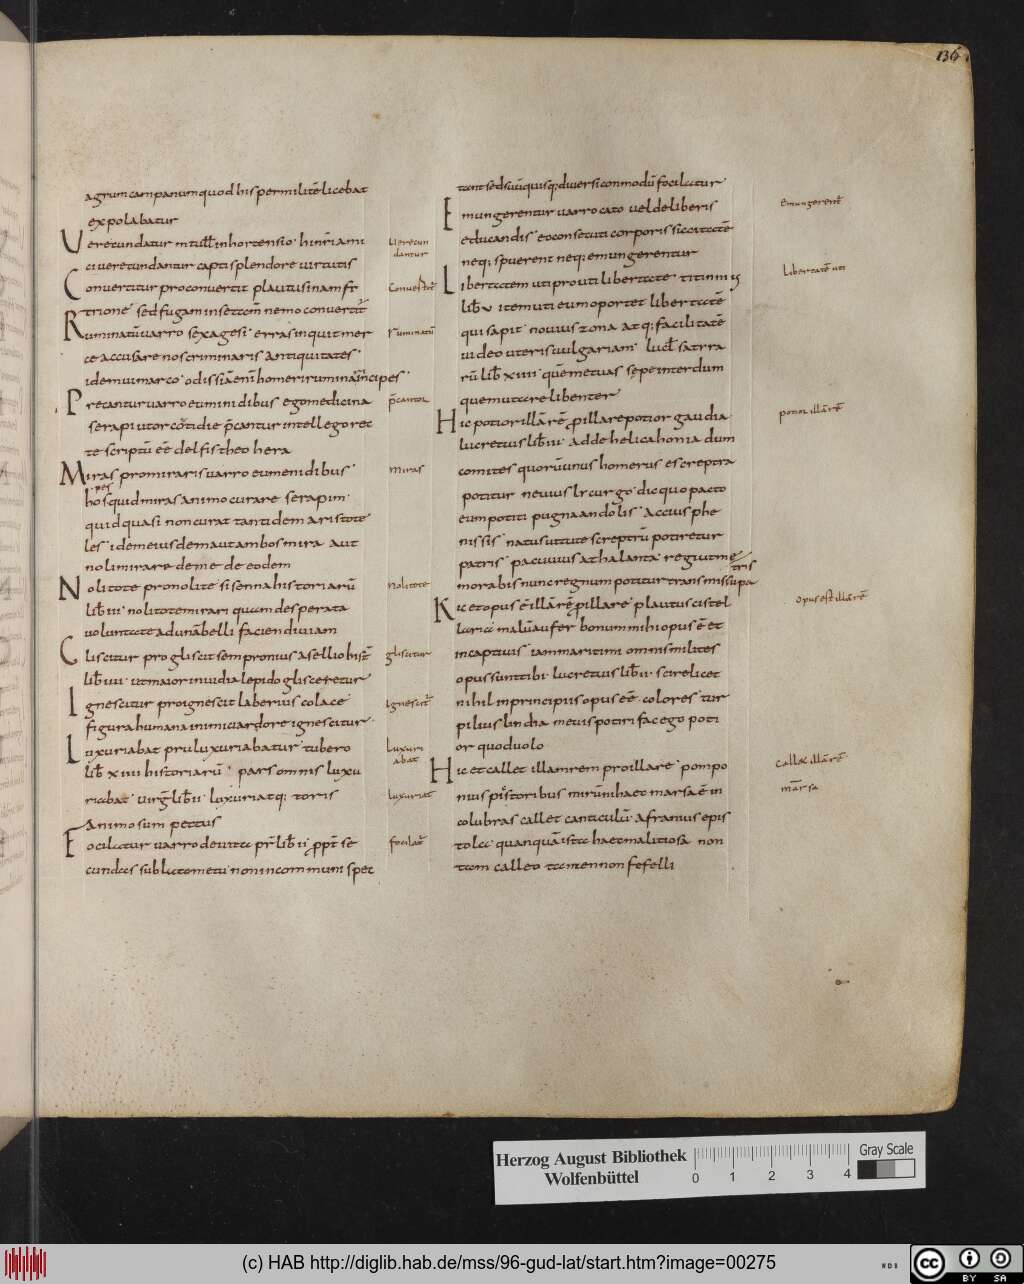 136
agrum campanum quod his per militē licebat
expolabatur
Verecundatur m tull̄ in hortensio hinc̄ iam
ci verecundantur capti splendore virtutis
Convertitur pro convertit plautus in amfi
trione sed fugam in se tam̄ nemo convertit̄
Ruminatū varro sexagesi erras inquit mer
ce accusare nos criminaris antiquitates
idem vi marco odissiāen̄ homeri ruminari incipes
Precantur varro eumini dibus ego medicina
serapi utor cotidie p̄cantur intellego rec
te scriptū eē delfis theo hera
Miras pro miraris varro eumenidibus
hospes quid miras animo curare serapim
quid quasi non curat tantidem aristote
les idem eiusdem aut ambos mira aut
noli mirare de me de eodem
Nolitote pro nolite sisenna historiarū
lib̄ iii nolitote mirari quam desperata
voluntate ad unā belli faciendi viam
Gliscitur pro gliscit sempronius asellio hist̄
lib̄ iiii ut maior invidia lepido glisceretur
Ignescitur pro ignescit laberius colace
figura humana inimicu ardore ignescitur
Luxuriabat pru luxuriabatur tubero
lib̄ xiiii historiarū pars omnis luxu
riabat virḡ lib̄ ii luxuriatq; toris
animosum pectus
Focilatur varro de vita pr̄ lib̄ ii p̄pt̄ se
cundas sublato metu non in commune spec
Verecun
dantur
Convertit̄
ruminatū
p̄cantor
Miras
Nolitote
gliscitur
Ignescit̄
Luxuri
abat
luxuriat
focilat̄
tant sed suū quisq; diversi conmodū focilatur
Emungerentur varro cato vel de liberis
educandis eo consecuti corporis siccitatē
neq; spuerent neq; emungerentur
Libertatem uti pro uti libertate titinnius
lib̄ v item uti eum oportet libertatē
qui sapit novius zona atq; facilitatē
video uteris vulgariam lucil̄ satira
rū lib̄ xiiii quē metuas sepe interdum
quem utare libenter
Hic potior illā rē p illa re potior gaudia
lucretius lib̄ iii adde helicahonia dum
comites quorū unus homerus esceptra
potitur nevius lycurgo dic quo pacto
eum potiti pugna an dolis accius phe
nissis natus ut tute sceptrū poteretur
patris pacuvius athalanta regium me
tris
morabis nunc regnum potitur transmissu pa
Hic et opus ē illā rē p illa re plautus cistel
laria malū aufer bonum mihi opus ē et
in captivis iam maritimi omnis milites
opus sunt tibi lucretius lib̄ ii scire licet
nihil in principiis opus eē colores tur
pilius lindia metuis potiri fac ego poti
or quod volo
Hic et callet illam rem pro illa re pompo
nius pistoribus mirum haec marsa ē in
colubras callet canticulū afranius epis
tola quanquā ista haec malitiosa non
tam calleo tamen non fefelli
emungerent̄
libertatē uti
potior illā rē
opus est illā rē
callet illā rē
marsa
Herzog August Bibliothek
Wolfenbüttel
0 1 2 3 4
Gray Scale
(c) HAB http://diglib.hab.de/mss/96-gud-lat/start.htm?image=00275
WDB
cc
BY SA